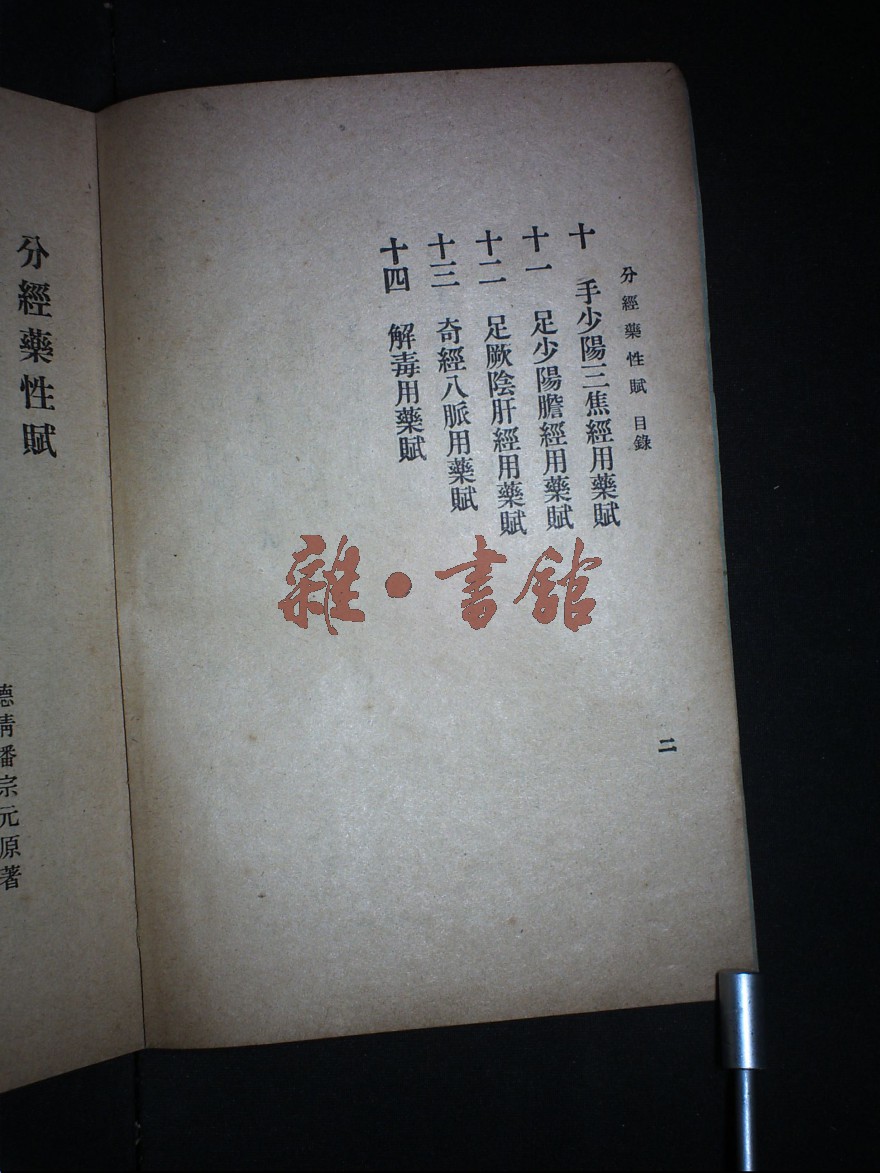 分經藥性賦 目錄
十 手少陽三焦經用藥賦
十一 足少陽膽經用藥賦
十二 足厥陰肝經用藥賦
十三 奇經八脈用藥賦
十四 解毒用藥賦
二
雜・書館
分經藥性賦
德清潘宗元原著